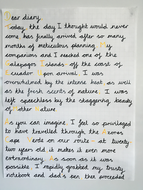 Dear diary,
Today, the day I thought would never
come has finally arrived after so many
months of meticulous planning. My
companions and I reached one of the
Galapagos Islands off the coast of
Ecuador. Upon arrival I was
overwhelmed by the intense heat as well
as the fresh scents of nature. I was
left speechless by the staggering beauty
of Mother Nature.
As you can imagine I feel so privileged
to have travelled through the Azores
Cape Verde on our route - at twenty
two years old it makes it even more
extraordinary. As soon as it was
possible I rapidly grabbed my trusty
notebook and dad's pen then proceeded